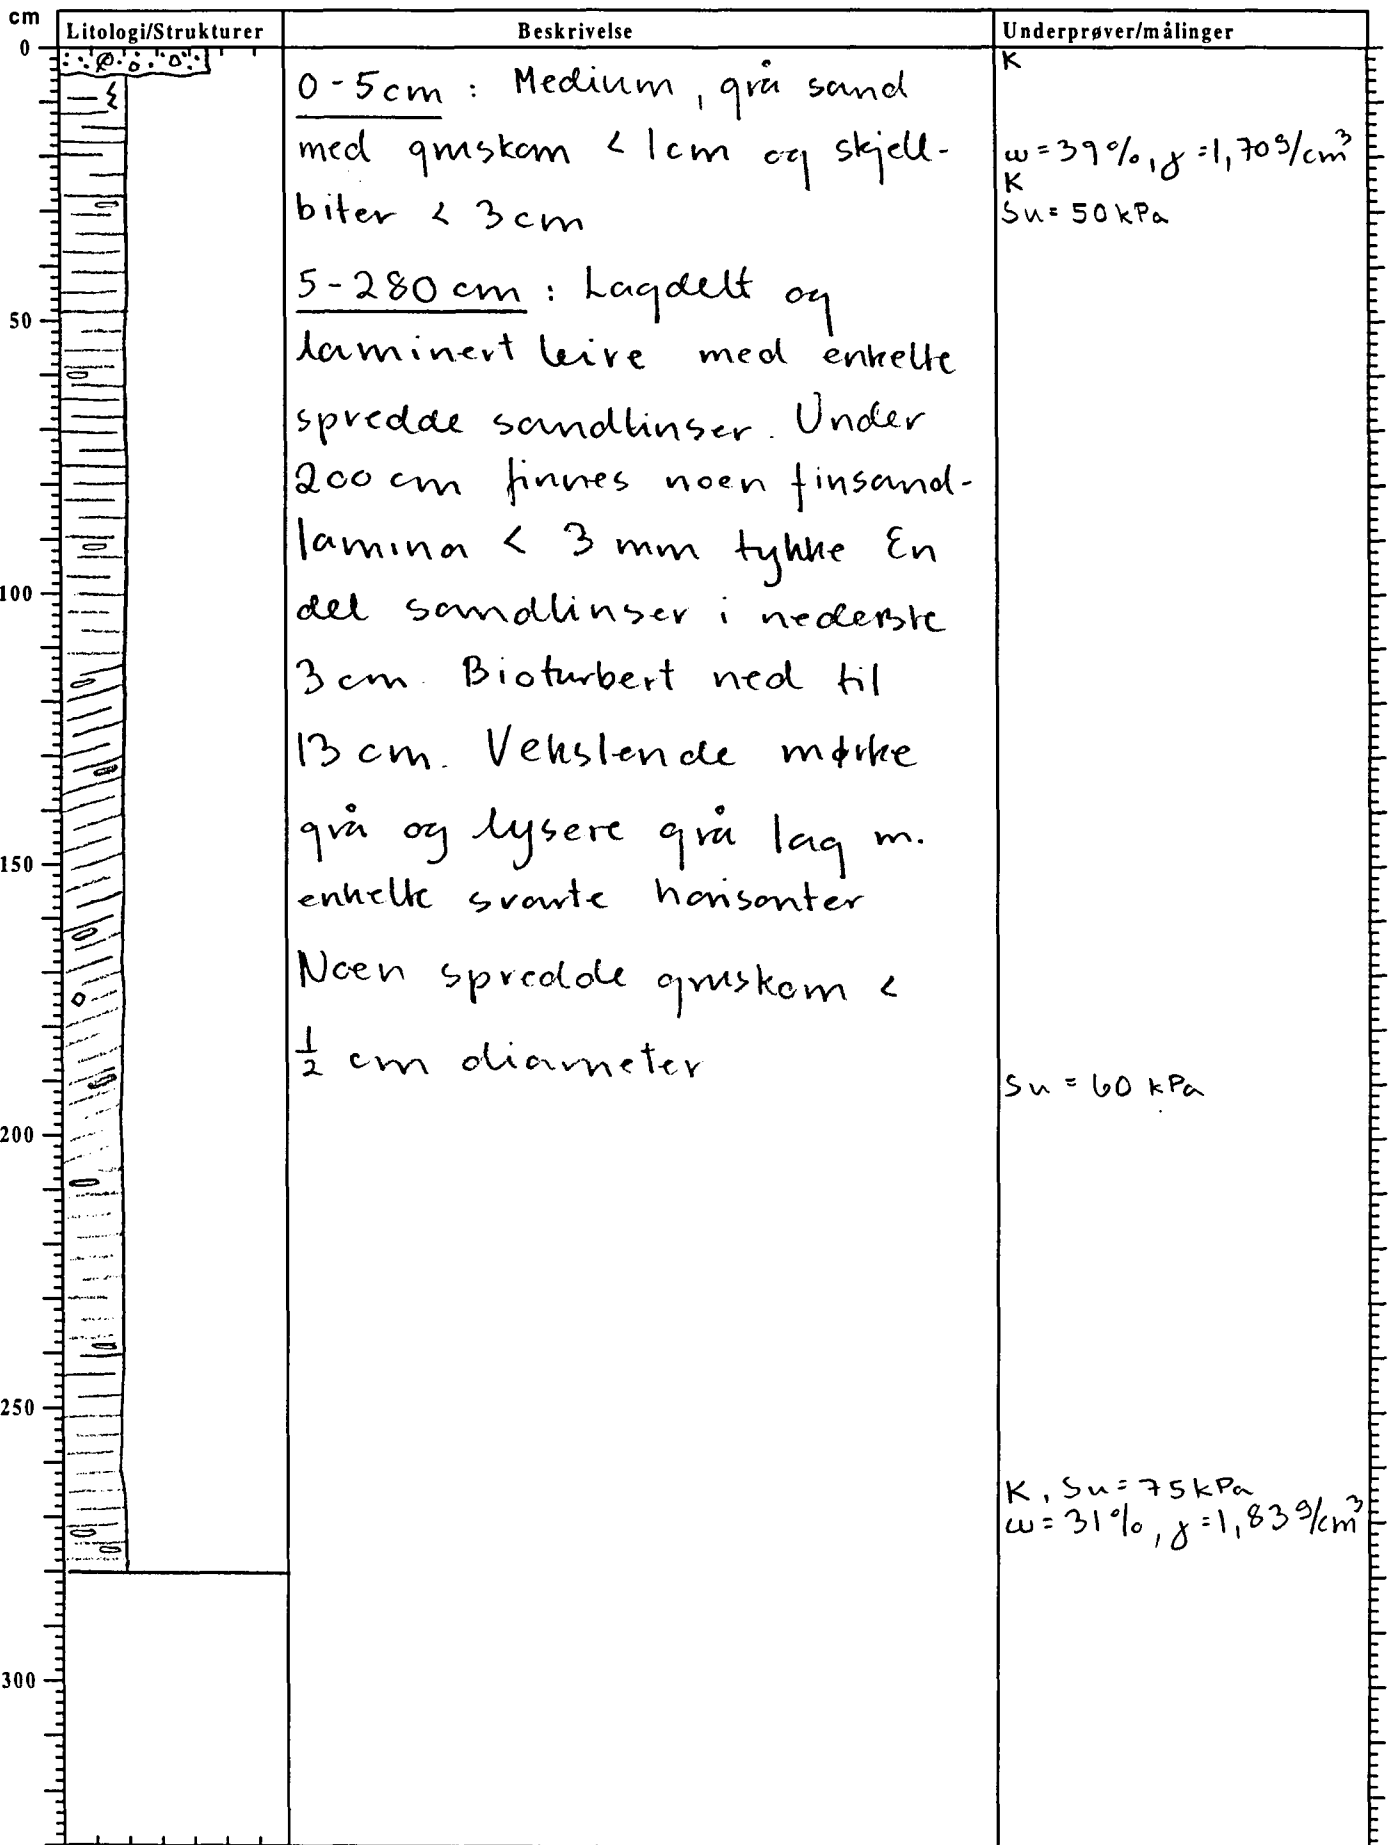 cm
Litologi/Strukturer
Beskrivelse
Underprøver/målinger
0
50
100
150
200
250
300
0-5cm : Medium, grå sand
med gruskorn < 1cm og skjell-
biter < 3cm
5-280 cm : Lagdelt og
laminert leire med enkelte
spredde sandlinser. Under
200 cm finnes noen finsand-
lamina < 3 mm tykke En
del sandlinser i nederste
3 cm. Bioturbert ned til
13 cm. Vekslende mørke
grå og lysere grå lag m.
enkelte svarte horisonter
Noen spredde gruskorn <
½ cm diameter
K
w = 39%, γ = 1,70 g/cm³
K
Su = 50 kPa
Su = 60 kPa
K, Su = 75 kPa
w = 31%, γ = 1,83 g/cm³